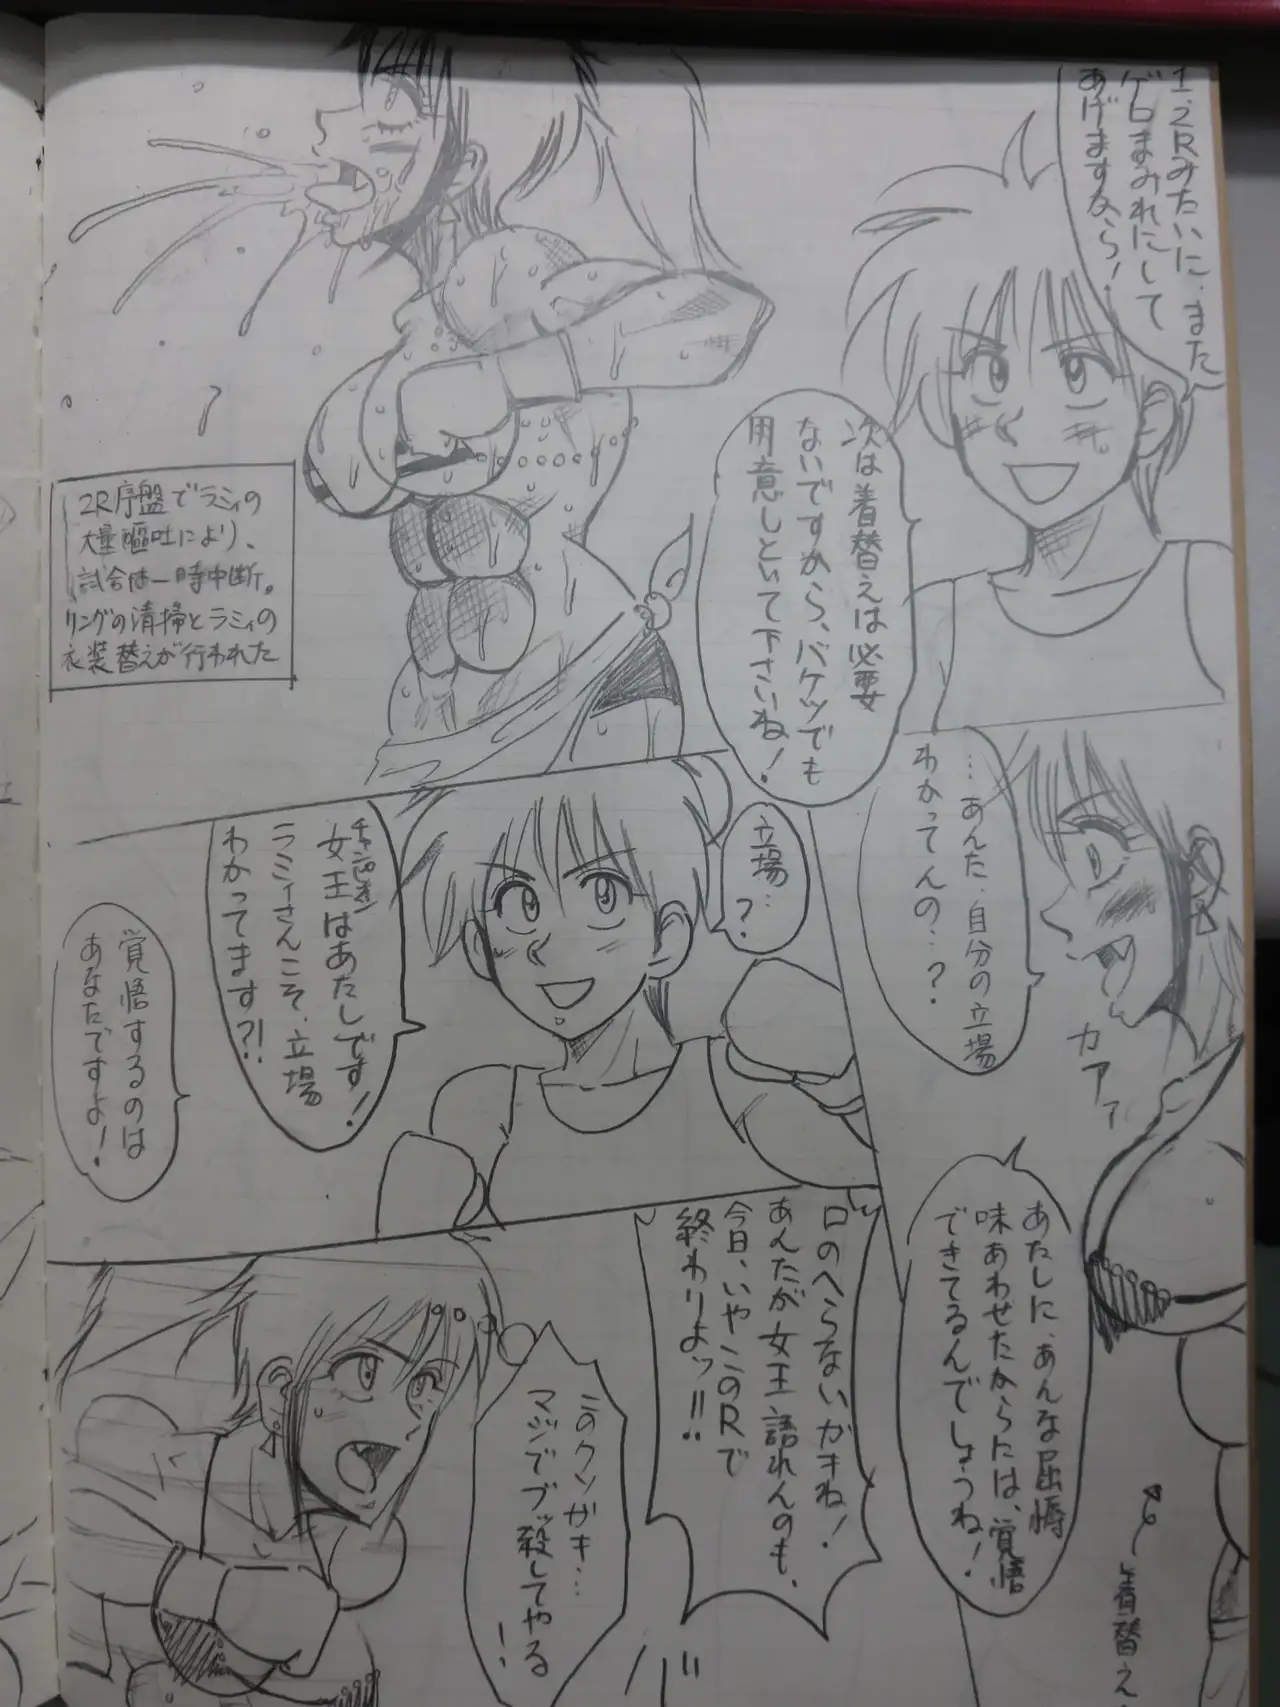 1、2Rみたいに、また
ゲロまみれにして
あげますから!
次は着替えは必要
ないですから、バケツでも
用意しといて下さいね!
2R序盤でラミィの
大量嘔吐により、
試合は一時中断。
リングの清掃とラミィの
衣装替えが行われた
…あんた、自分の立場
わかってんの…?
カアァ
あたしに、あんな屈辱
味あわせたからには、覚悟
できてるんでしょうね!
着替え
立場…?
女王はあたしです!
ラミィさんこそ、立場
わかってます?!
覚悟するのは
あなたですよ!
口のへらないガキね!
あんたが女王語れんのも、
今日、いやこのRで
終わりよッ!!
このクソガキ…
マジでブッ殺してやる
!